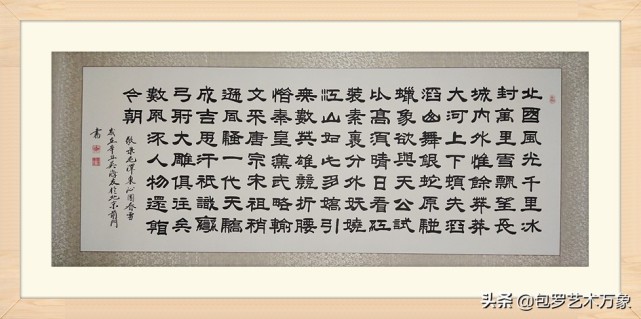 北國風光千里冰
封萬里雪飄望長
城內外惟餘莽莽
大河上下頓失滔
滔山舞銀蛇原馳
蠟象欲與天公試
比高須晴日看紅
裝素裹分外妖嬈
江山如此多嬌引
無數英雄競折腰
惜秦皇漢武略輸
文采唐宗宋祖稍
遜風騷一代天驕
成吉思汗祇識彎
弓射大雕俱往矣
數風流人物還看
今朝
敬录毛澤東沁園春雪
友於北京前門
書
头条 @包罗艺术万象